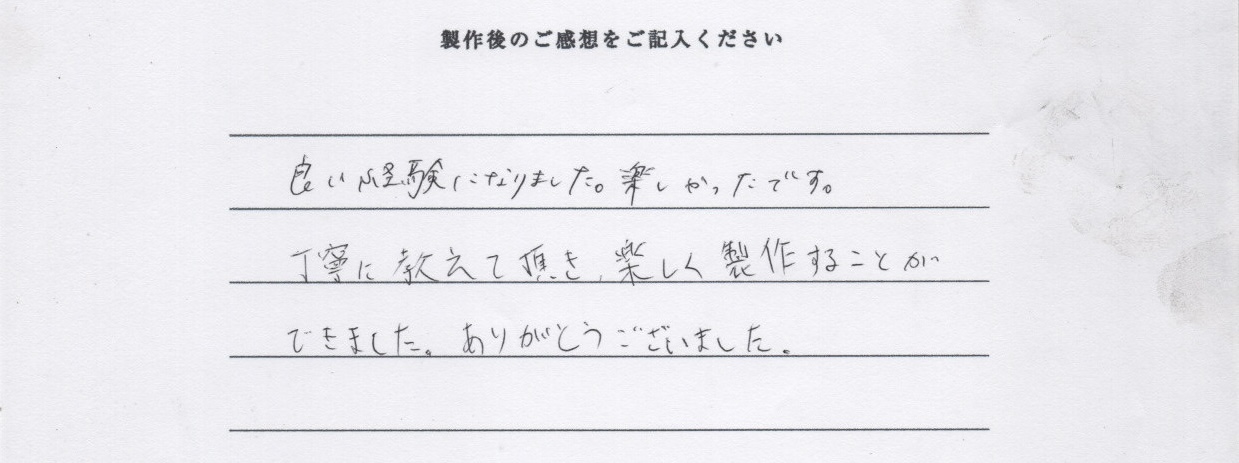 製作後のご感想をご記入ください
良い経験になりました。楽しかったです。
丁寧に教えて頂き、楽しく製作することが
できました。ありがとうございました。